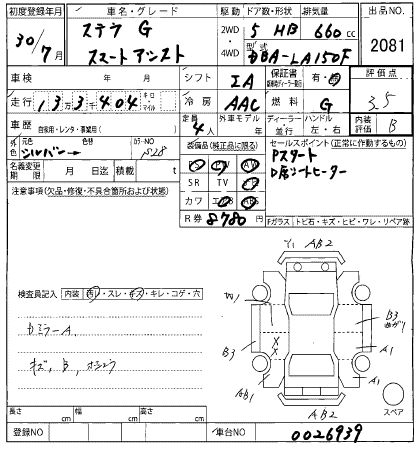 初度登録年月 車名・グレード 駆動 ドア数・形状 排気量 出品NO.
30/7月 ステラ G スマートアシスト 2WD 4WD 5 HB 660cc 2081
型式 DBA-LA150F
車検 年 月 シフト IA 保証書 有・無 評価点
走行 133千404 キロ・マイル 冷房 AAC 燃料 G 3.5
車歴 自家用・レンタ・事業用( ) 定員 4人 外車モデル 年 ディーラー 並行 ハンドル 左・右 内装評価 B
外色 元色 シルバー 色替 カラーNO S28
装備品(純正品に限る) セールスポイント(正常に動作するもの)
Pスタート
D席シートヒーター
名義変更期限 月 日迄 積載 t
SR TV
カワ
R券 8780円
注意事項(欠品・修復・不具合箇所および状態)
Fガラス トビ石・キズ・ヒビ・ワレ・リペア跡
検査員記入 内装 ・スレ・キズ・キレ・コゲ・穴
カミラーA.
キズ, B,
Y1 AB2
W1
B3
B3
X
X
A1
A1
AB1
AB2
スペア
長さ cm 幅 cm 高さ cm
登録NO 車台NO 0026939